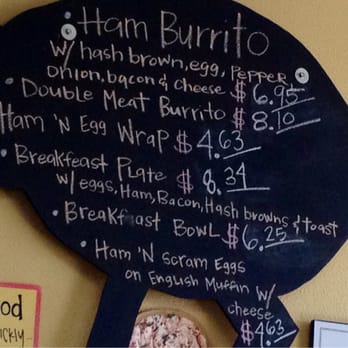 • Ham Burrito
w/ hash brown, egg, Pepper
onion, bacon & cheese $6.95
• Double Meat Burrito $8.10
Ham 'N Egg Wrap $4.63
• Breakfeast Plate $8.34
w/ eggs, Ham, Bacon, Hash browns & toast
• Breakfast Bowl $6.25
• Ham 'N Scram Eggs
on English Muffin w/
cheese
$4.63
od
ickly